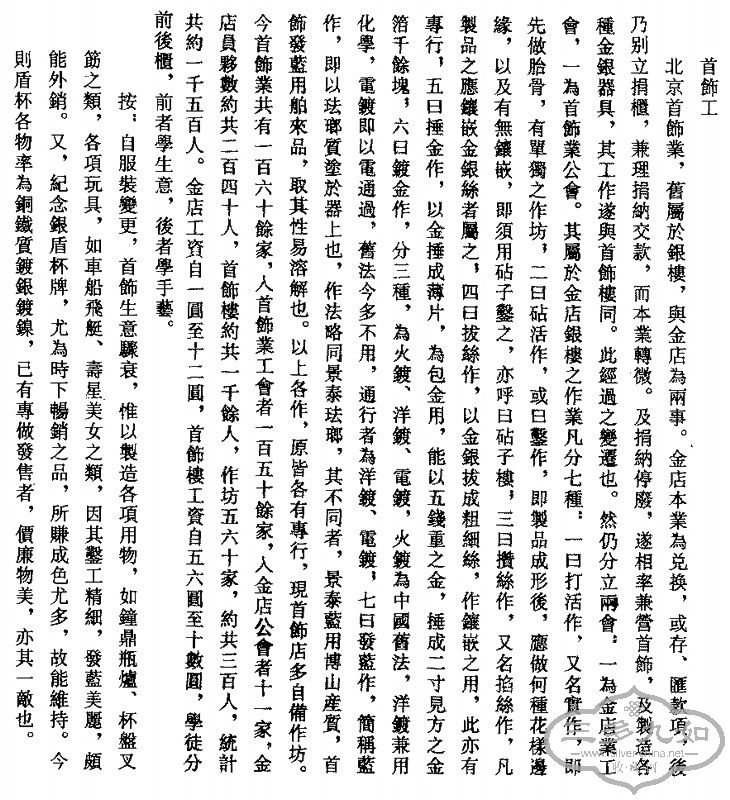 首飾工
北京首飾業，舊屬於銀樓，與金店為兩事。金店本業為兌換，或存、匯款項，後
乃別立捐櫃，兼理捐納交款，而本業轉微。及捐納停廢，遂相率兼營首飾，及製造各
種金銀器具，其工作遂與首飾樓同。此經過之變遷也。然仍分立兩會，一為金店業工
會，一為首飾業公會。其屬於金店銀樓之作業凡分七種：一曰打活作，又名實作，即
先做胎骨，有單獨之作坊，二曰砧活作，或曰鏨作，即製品成形後，應做何種花樣邊
緣，以及有無鑲嵌，即須用砧子鏨之，亦呼曰砧子樓，三曰攢絲作，又名掐絲作，凡
製品之應鑲嵌金銀絲者屬之，四曰拔絲作，以金銀拔成粗細絲，作鑲嵌之用，此亦有
專行，五曰捶金作，以金捶成薄片，為包金用，能以五錢重之金，捶成二寸見方之金
箔千餘塊，六曰鍍金作，分三種，為火鍍、洋鍍、電鍍，火鍍為中國舊法，洋鍍兼用
化學，電鍍即以電通過，舊法今多不用，通行者為洋鍍、電鍍，七曰發藍作，簡稱藍
作，即以琺瑯質塗於器上也，作法略同景泰琺瑯，其不同者，景泰藍用博山産質，首
飾發藍用舶來品，取其性易溶解也。以上各作，原皆各有專行，現首飾店多自備作坊。
今首飾業共有一百六十餘家，入首飾業工會者一百五十餘家，入金店公會者十一家，金
店員夥數約共二百四十人，首飾樓約共一千餘人，作坊五六十家，約共三百人，統計
共約一千五百人。金店工資自一圓至十二圓，首飾樓工資自五六圓至十數圓，學徒分
前後櫃，前者學生意，後者學手藝。
按：自服裝變更，首飾生意驟衰，惟以製造各項用物，如鐘鼎瓶爐、杯盤叉
筯之類，各項玩具，如車船飛艇、壽星美女之類，因其鏨工精細，發藍美麗，頗
能外銷。又，紀念銀盾杯牌，尤為時下暢銷之品，所賺成色尤多，故能維持。今
則盾杯各物率為銅鐵質鍍銀鍍鎳，已有專做發售者，價廉物美，亦其一敵也。